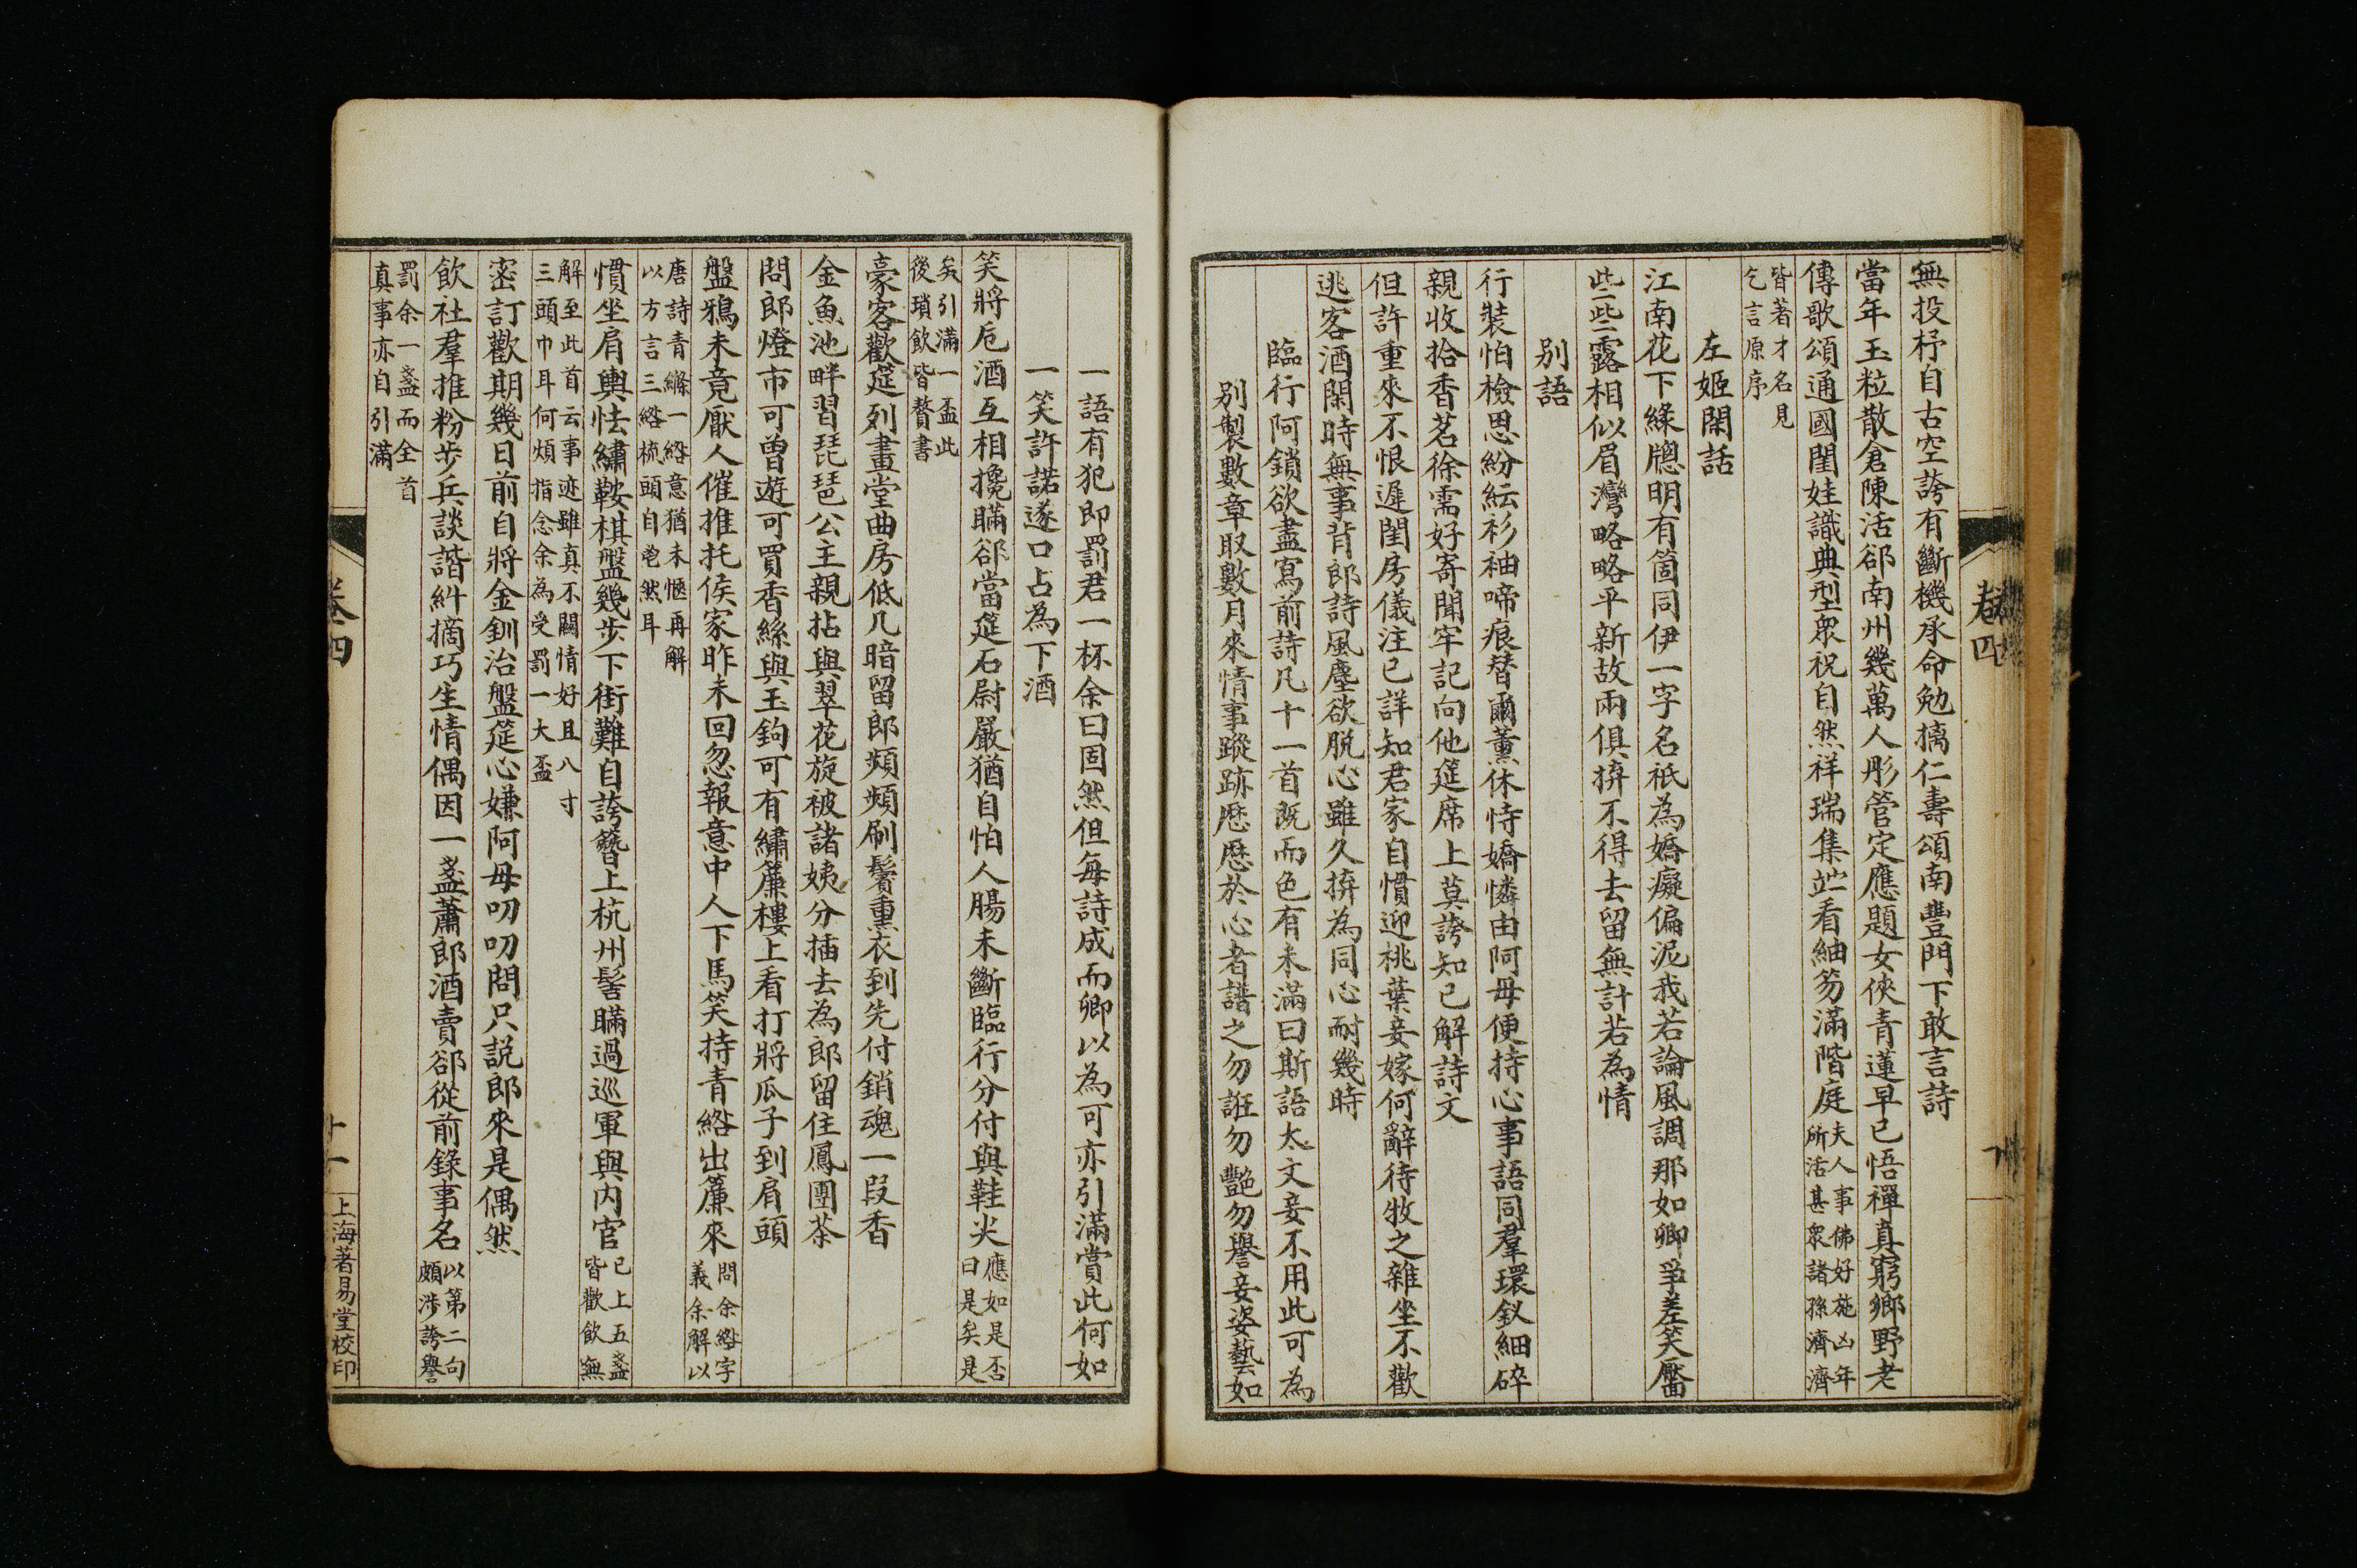 無投杼自古空誇有斷機承命勉摛仁壽頌南豐門下敢言詩
當年玉粒散倉陳活郤南州幾萬人彤管定應題女俠青蓮早已悟禪真窮鄉野老
傳歌頌通國閨娃識典型衆祝自然祥瑞集竚看紬笏滿階庭夫人事佛好施凶年
所活甚衆諸孫濟濟
皆著才名見
乞言原序
左姬閑話
江南花下綠牕明有箇同伊一字名祇為嬌癡偏泥我若論風調那如卿爭差笑靨
些些露相似眉灣略略平新故兩俱拚不得去留無計若為情
別語
行裝怕檢思紛紜衫袖啼痕替爾薰休恃嬌憐由阿母便持心事語同羣環釵細碎
親收拾香茗徐需好寄聞牢記向他筵席上莫誇知已解詩文
但許重來不恨遲閨房儀注已詳知君家自慣迎桃葉妾嫁何辭待牧之雜坐不歡
逃客酒閑時無事背郎詩風塵欲脱心雖久拚為同心耐幾時
臨行阿鎖欲盡寫前詩凡十一首既而色有未滿曰斯語太文妾不用此可為
別製數章取數月來情事蹤跡歷歷於心者譜之勿誑勿艷勿譽妾姿藝如
卷四
一語有犯即罰君一杯余曰固然但每詩成而卿以為可亦引滿賞此何如
一笑許諾遂口占為下酒
笑將卮酒互相攙瞞郤當筵石尉嚴猶自怕人腸未斷臨行分付與鞋尖應如是否
曰是矣是
矣引滿一盃此
後瑣飲皆贅書
豪客歡筵列畫堂曲房低几暗留郎頻頻刷鬢熏衣到先付銷魂一段香
金魚池畔習琵琶公主親拈與翠花旋被諸姨分插去為郎留住鳳團茶
問郎燈市可曾遊可買香絲與玉鉤可有繡簾樓上看打將瓜子到肩頭
盤鴉未竟厭人催推托侯家昨未回忽報意中人下馬笑持青綹出簾來問余綹字
義余解以
唐詩青絛一綹意猶未愜再解
以方言三綹梳頭自皅然耳
慣坐肩輿怯繡鞍棋盤幾步下街難自誇簪上杭州髻瞞過巡軍與内官已上五盞
皆歡飲無
解至此首云事迹雖真不關情好且八寸
三頭巾耳何煩指念余為受罰一大盃
密訂歡期幾日前自將金釧治盤筵心嫌阿母叨叨問只説郎來是偶然
飲社羣推粉步兵談諧糾摘巧生情偶因一盞蕭郎酒賣郤從前錄事名以第二句
頗涉誇譽
罰余一盞而全首
真事亦自引滿
卷四
十一
上海著易堂校印